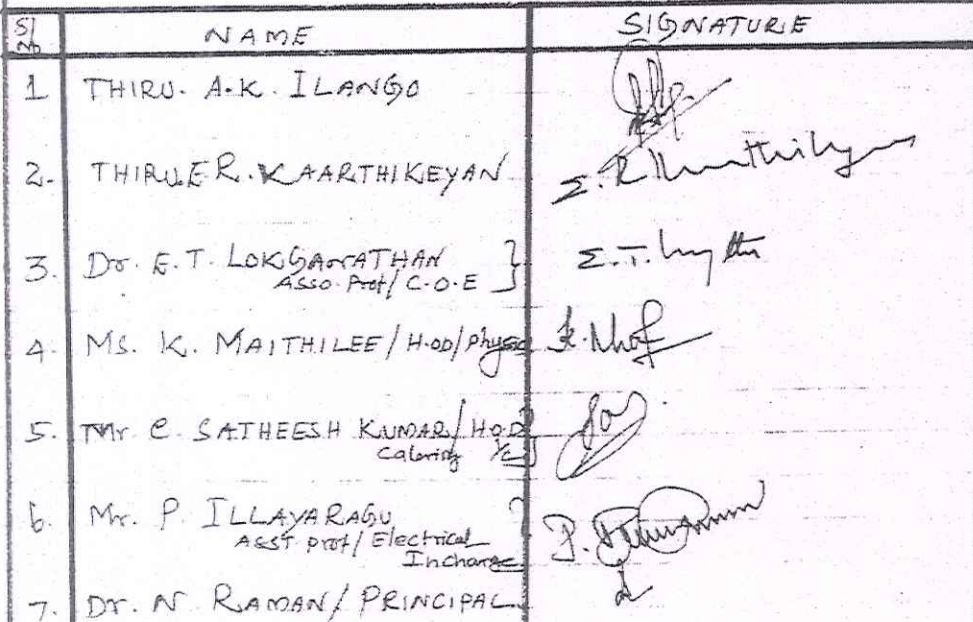 Sl No NAME SIGNATURE
1 THIRU. A.K. ILANGO
2. THIRU.E.R. KAARTHIKEYAN E.R. Kaarthikeyan
3. Dr. E.T. LOKGANATHAN E.T.
Asso. Prof/ C.O.E
4. Ms. K. MAITHILEE/H.OD/Physics K.
5. Mr C. SATHEESH KUMAR/H.O.D
Catering I/C
6 Mr. P. ILLAYARAGU P.
ASST prof/ Electrical
Incharge
7. Dr. N RAMAN/ PRINCIPAL